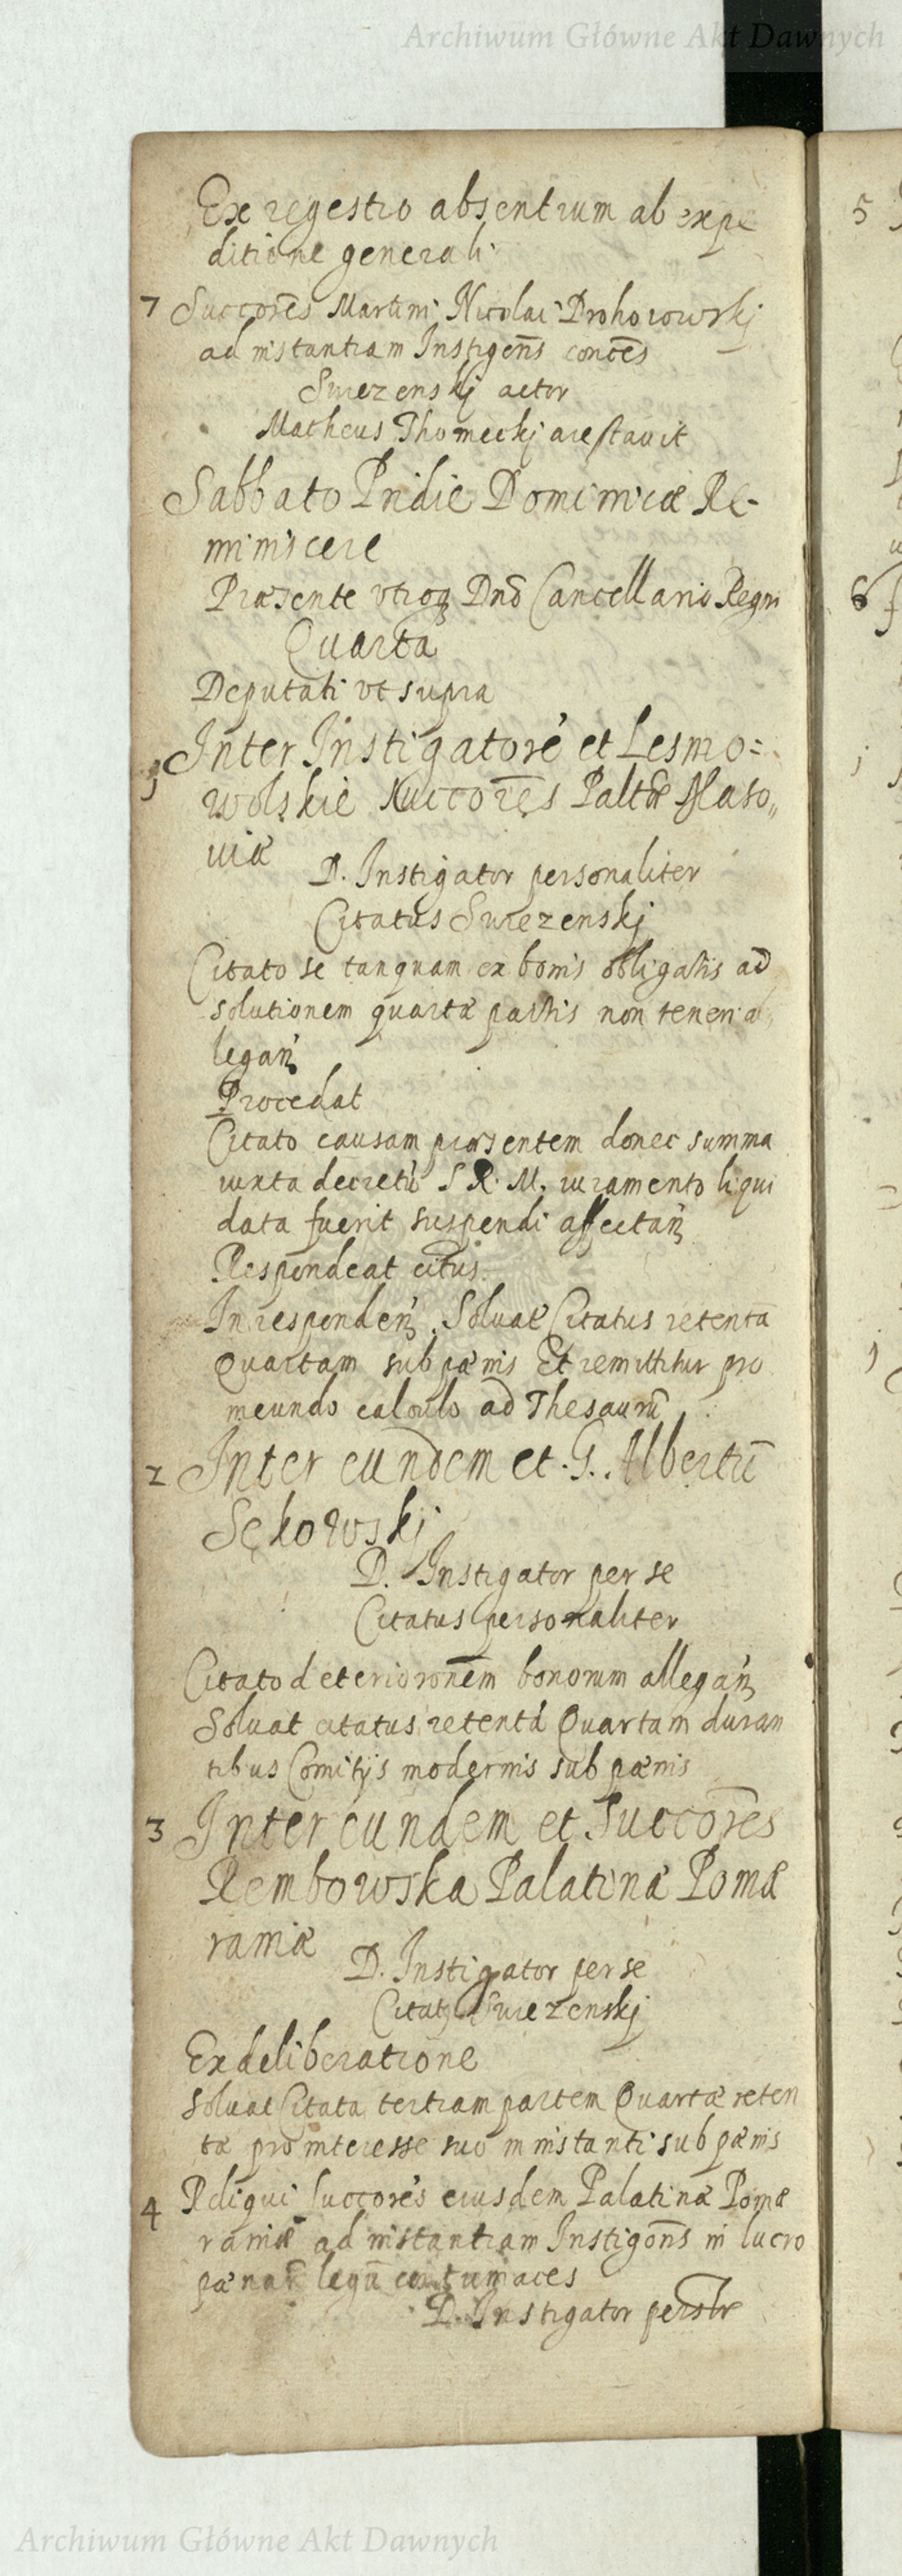 Archiwum Główne Akt Dawnych
Ex regestro absentium ab expe
ditione generali
7 Succōres Martini Nicolai Drohoiowskj
ad instantiam Instigen̄s contēs
Swiezenskj actor
Matheus Thomeckj arestauit
Sabbato Pridie Dominicæ Re-
miniscere
Præsente vtroq Dnō Cancellario Regni
Quarta
Deputati vt supra
1 Inter Instigatorē et Lesmo=
wolskie Succōres Paltæ Maso„
uiæ
D. Instigator personaliter
Citatus Swiezenskj
Citato se tanquam ex bonis obligatis ad
solutionem quartæ partis non teneri a
legan
Procedat
Citato causam præsentem donec summa
iuxta decretū S R. M. iuramento liqui
data fuerit suspendi affectan
Respondeat citus
In responden. Soluat Citatus retenta
Quartam sub pænis Et remittitur pro
ineundo calculo ad Thesaurū
2 Inter eundem et G. Albertū
Sękowskj
D. Instigator per se
Citatus personaliter
Citato deterioronēm bonorum allegan
Soluat citatus retentā Quartam duran
tibus Comitijs modernis sub pænis
3 Inter eundem et Succōres
Rembowska Palatinæ Pomæ
raniæ
D. Instigator per se
Citat Swiezenskj
Ex deliberatione
Soluat Citata tertiam partem Quartæ reten
tæ pro interesse suo in instanti sub pænis
4 Reliqui succorēs eiusdem Palatinæ Pomæ
raniæ ad instantiam Instigōns in lucro
pænar̄ legū contumaces
D. Instigator
5
6
Archiwum Główne Akt Dawnych